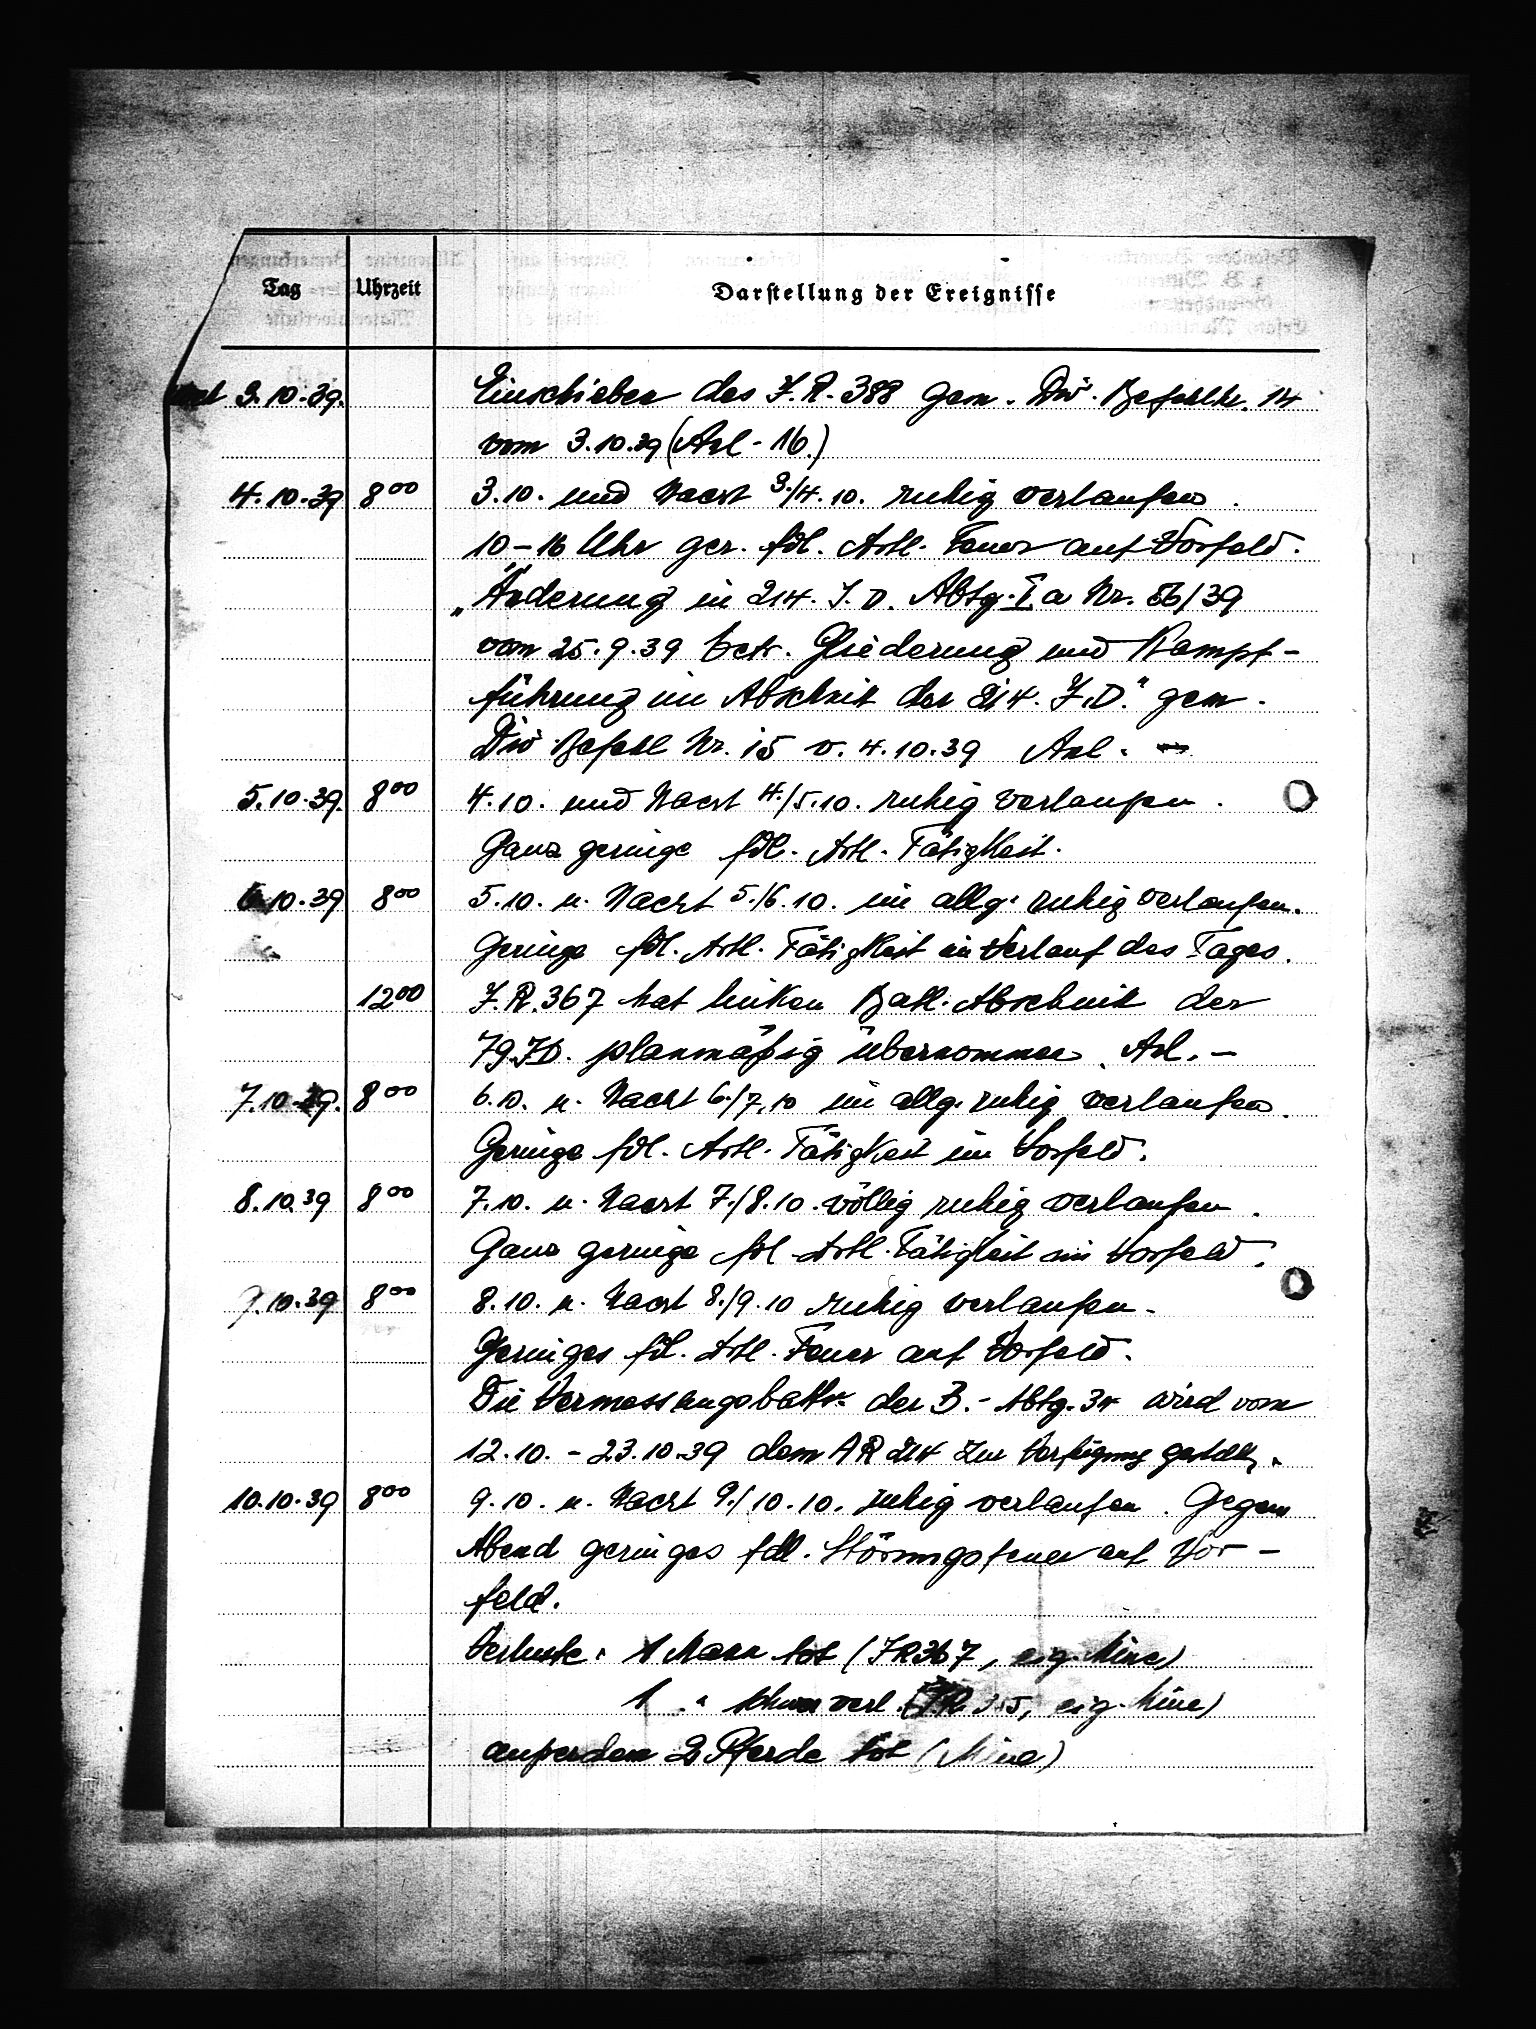 Tag Uhrzeit Darstellung der Ereignisse
3.10.39. Einschieben des J.R. 388 gem. Div. Befehl Nr. 14
vom 3.10.39 (Anl. 16.)
4.10.39 8⁰⁰ 3.10. und Nacht 3./4.10. ruhig verlaufen.
10-16 Uhr ger. fdl. Artl. Feuer auf Vorfeld.
„Änderung in 214. J.D. Abtg. Ia Nr. 56/39
vom 25.9.39 betr. Gliederung und Kampf-
führung im Abschnitt der 214. J.D." gem.
Div. Befehl Nr. 15 v. 4.10.39 Anl.
5.10.39. 8⁰⁰ 4.10. und Nacht 4./5.10. ruhig verlaufen.
Ganz geringe fdl. Artl. Tätigkeit.
6.10.39 8⁰⁰ 5.10. u. Nacht 5./6.10. im allg. ruhig verlaufen.
Geringe fdl. Artl. Tätigkeit im Verlauf des Tages.
12⁰⁰ J.R. 367 hat linken Batl. Abschnitt der
79. J.D. planmäßig übernommen. Anl. -
7.10.39. 8⁰⁰ 6.10. u. Nacht 6./7.10 im allg. ruhig verlaufen.
Geringe fdl. Artl. Tätigkeit im Vorfeld.
8.10.39 8⁰⁰ 7.10. u. Nacht 7./8.10. völlig ruhig verlaufen.
Ganz geringe fdl. Artl. Tätigkeit im Vorfeld.
9.10.39 8⁰⁰ 8.10. u. Nacht 8./9.10 ruhig verlaufen.
Geringes fdl. Artl. Feuer auf Vorfeld.
Die Vermessungsbattr. der B.-Abtg. 34 wird vom
12.10. - 23.10.39 dem AR 214 zur Verfügung gestellt.
10.10.39 8⁰⁰ 9.10. u. Nacht 9./10.10. ruhig verlaufen. Gegen
Abend geringes fdl. Störungsfeuer auf Vor-
feld.
Verluste: 1 Mann tot (JR 367, eig. Mine)
1 " schwer verl. (eig. Mine)
außerdem 2 Pferde tot (Mine)